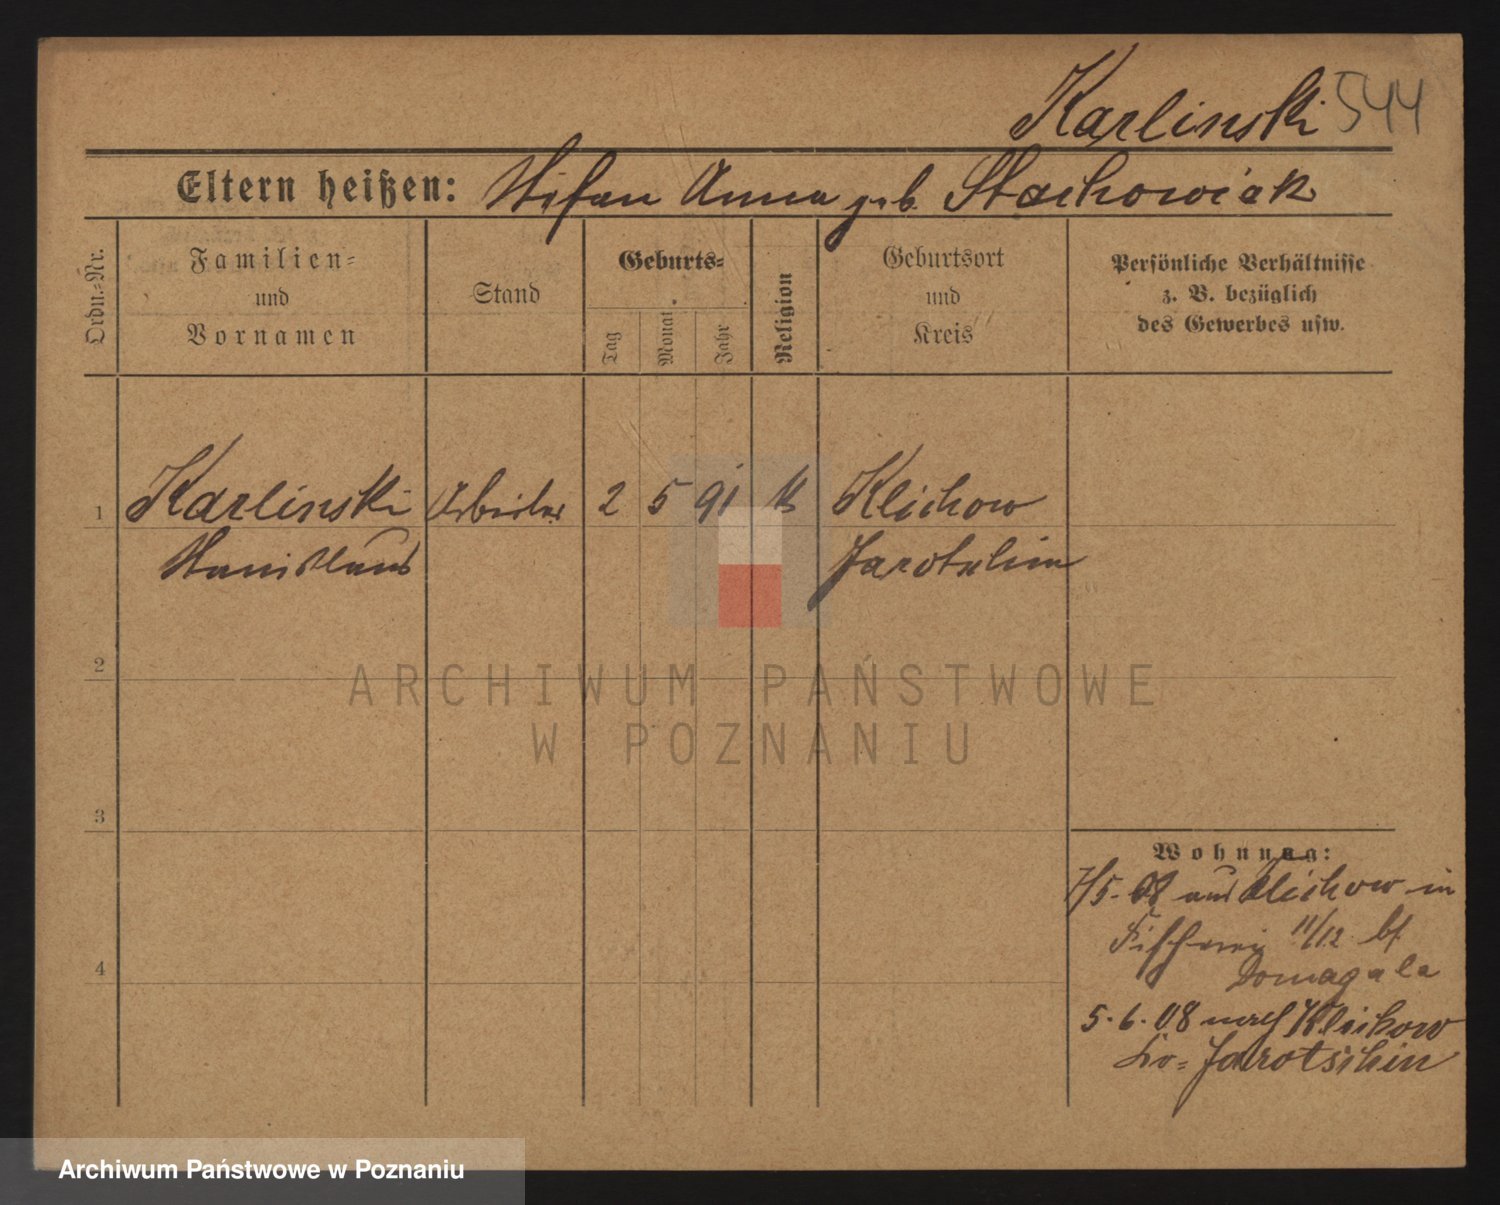 Karlinski 544
Eltern heißen: Stefan Anna geb. Stachowiak
Ordn.-Nr.
Familien-
und
Vornamen
Stand
Geburts-
Tag
Monat
Jahr
Religion
Geburtsort
und
Kreis
Persönliche Verhältnisse
z. B. bezüglich
des Gewerbes usw.
1 Karlinski Arbeiter 2 5 91 k Klichow
Stanislaus Jarotschin
2
ARCHIWUM PAŃSTWOWE
W POZNANIU
3
Wohnung:
7/5. 08 aus Klichow in
Fischerei 11/12 bf
Domagala
5. 6. 08 nach Klichow
Kr= Jarotschin
4
Archiwum Państwowe w Poznaniu